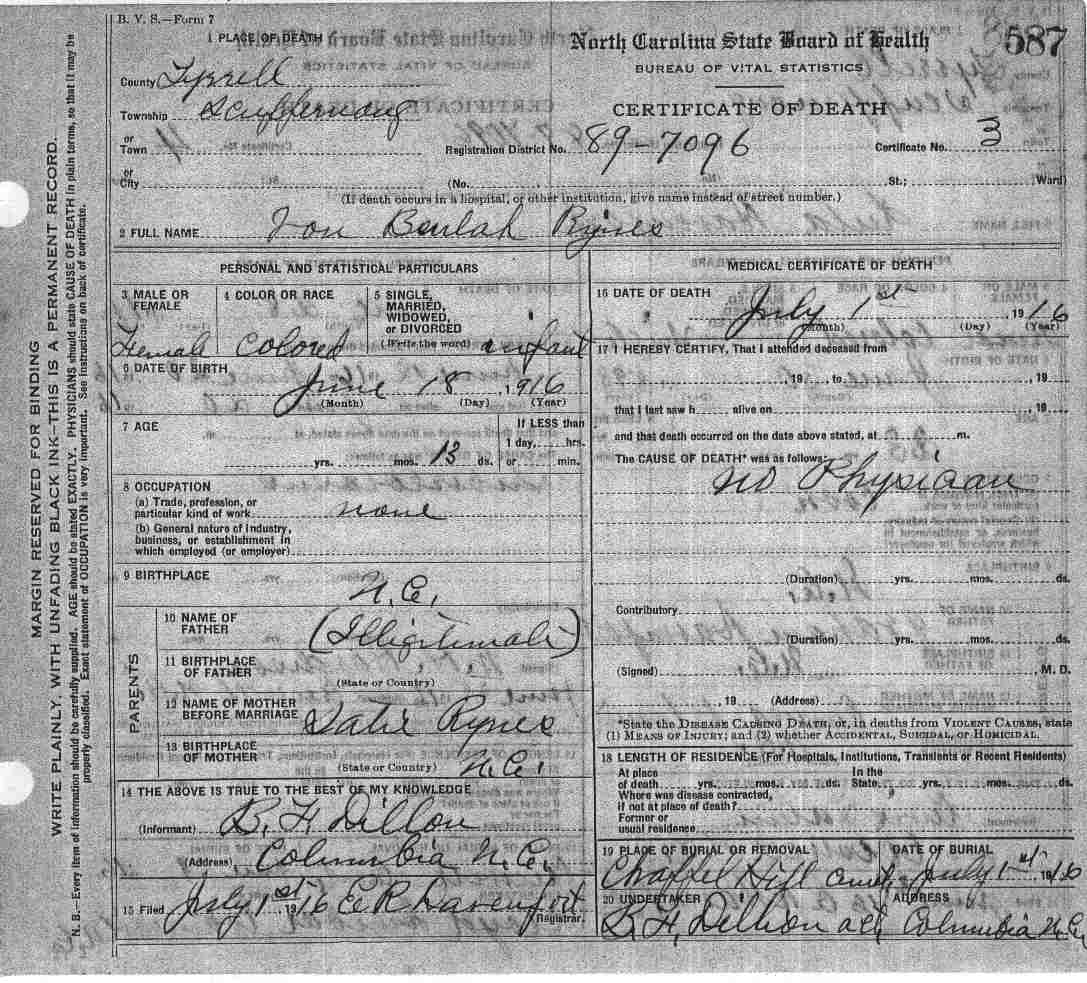 B. V. S.—Form 7
1 PLACE OF DEATH
North Carolina State Board of Health
587
BUREAU OF VITAL STATISTICS
CERTIFICATE OF DEATH
County Tyrrell
Township Scuppernong
or Town
Registration District No. 89-7096
Certificate No. 3
or City
(No. , St.; Ward)
(If death occurs in a hospital, or other institution, give name instead of street number.)
2 FULL NAME Beulah Rynes
PERSONAL AND STATISTICAL PARTICULARS
3 MALE OR FEMALE Female
4 COLOR OR RACE Colored
5 SINGLE, MARRIED, WIDOWED, or DIVORCED (Write the word) infant
6 DATE OF BIRTH June 18, 1916
(Month) (Day) (Year)
7 AGE
If LESS than
1 day, hrs.
yrs. mos. 13 ds. or min.
8 OCCUPATION
(a) Trade, profession, or
particular kind of work none
(b) General nature of industry,
business, or establishment in
which employed (or employer)
9 BIRTHPLACE N.C.
PARENTS
10 NAME OF FATHER (Illigitimate)
11 BIRTHPLACE OF FATHER
(State or Country)
12 NAME OF MOTHER BEFORE MARRIAGE Rynes
13 BIRTHPLACE OF MOTHER
(State or Country) N.C.
14 THE ABOVE IS TRUE TO THE BEST OF MY KNOWLEDGE
(Informant) B. H. Dillon
(Address) Columbia N.C.
15 Filed July 1st 1916 E R Davenport
Registrar.
MEDICAL CERTIFICATE OF DEATH
16 DATE OF DEATH July 1st, 1916
(Month) (Day) (Year)
17 I HEREBY CERTIFY, That I attended deceased from
, 19 , to , 19
that I last saw h alive on , 19
and that death occurred on the date above stated, at m.
The CAUSE OF DEATH* was as follows:
no Physician
(Duration) yrs. mos. ds.
Contributory
(Duration) yrs. mos. ds.
(Signed) , M. D.
, 19 (Address)
*State the DISEASE CAUSING DEATH, or, in deaths from VIOLENT CAUSES, state
(1) MEANS OF INJURY; and (2) whether ACCIDENTAL, SUICIDAL, or HOMICIDAL.
18 LENGTH OF RESIDENCE (For Hospitals, Institutions, Transients or Recent Residents)
At place of death yrs. mos. ds. In the State yrs. mos. ds.
Where was disease contracted,
if not at place of death?
Former or
usual residence
19 PLACE OF BURIAL OR REMOVAL DATE OF BURIAL
Chappel Hill July 1st 1916
20 UNDERTAKER ADDRESS
B. H. Dillion Columbia N.C.
MARGIN RESERVED FOR BINDING
WRITE PLAINLY, WITH UNFADING BLACK INK—THIS IS A PERMANENT RECORD.
N. B.—Every item of information should be carefully supplied. AGE should be stated EXACTLY. PHYSICIANS should state CAUSE OF DEATH in plain terms, so that it may be
properly classified. Exact statement of OCCUPATION is very important. See instructions on back of certificate.